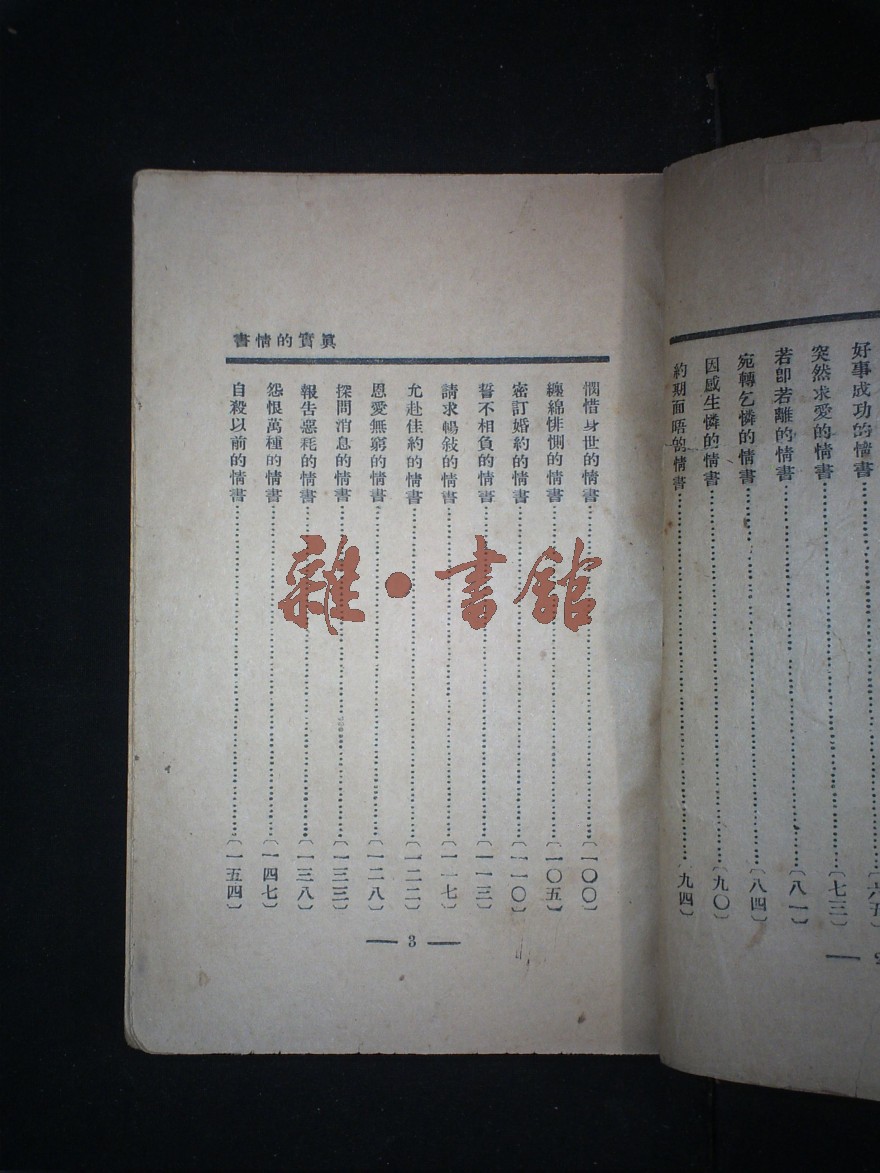 好事成功的情書……〔六五〕
突然求愛的情書……〔七三〕
若卽若離的情書……〔八一〕
宛轉乞憐的情書……〔八四〕
因感生憐的情書……〔九〇〕
約期面唔的情書……〔九四〕
書情的實眞
憫惜身世的情書……〔一〇〇〕
纏綿悱惻的情書……〔一〇五〕
密訂婚約的情書……〔一一〇〕
誓不相負的情書……〔一一三〕
請求暢敍的情書……〔一一七〕
允赴佳約的情書……〔一二二〕
恩愛無窮的情書……〔一二八〕
探問消息的情書……〔一三三〕
報告惡耗的情書……〔一三八〕
怨恨萬種的情書……〔一四七〕
自殺以前的情書……〔一五四〕
— 3 —
雜·書館